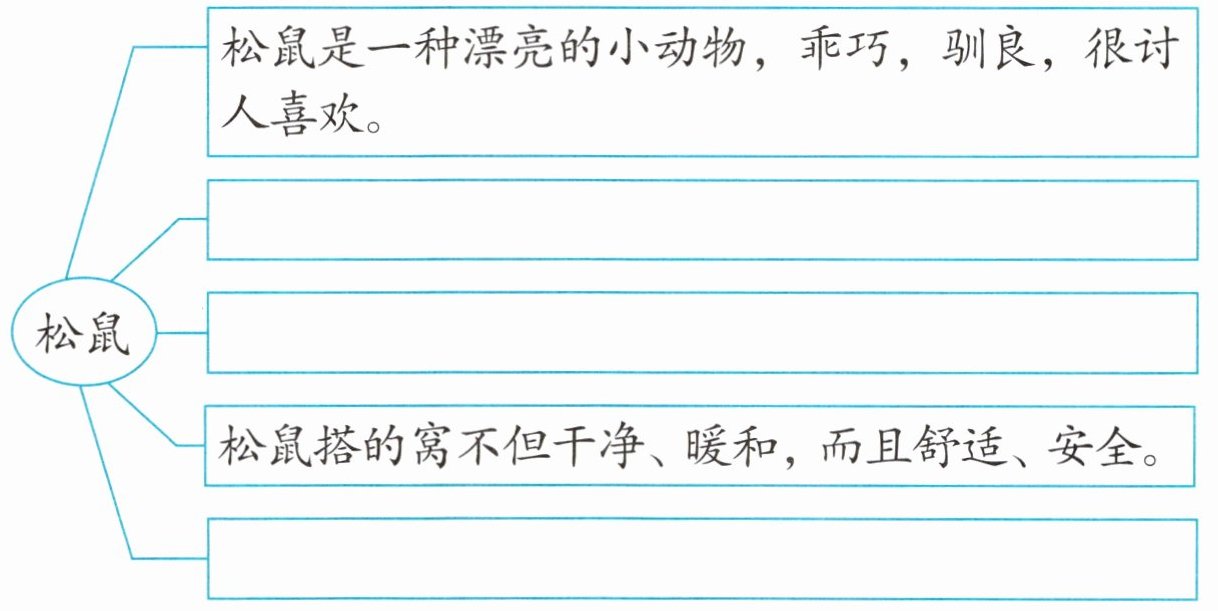 松鼠是一种漂亮的小动物，乖巧，驯良，很讨
人喜欢。
松鼠
松鼠搭的窝不但干净、暖和，而且舒适、安全。